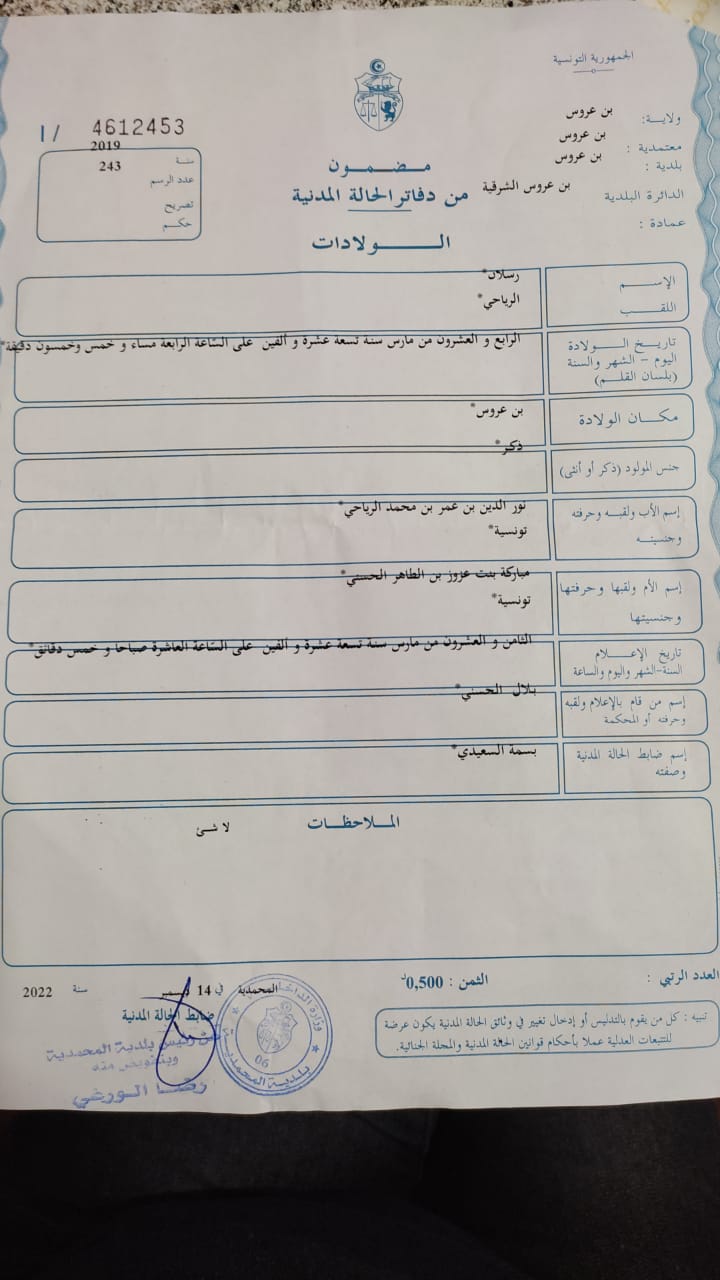 الجمهورية التونسية
ولاية: بن عروس
معتمدية : بن عروس
بلدية : بن عروس
الدائرة البلدية بن عروس الشرقية
عمادة :
I / 4612453
سنة 2019
عدد الرسم 243
تصريح
حكم
مضمون
من دفاتر الحالة المدنية
الولادات
الإسم رسلان*
اللقب الرياحي*
تاريخ الولادة
اليوم – الشهر والسنة
(بلسان القلم)
الرابع و العشرون من مارس سنة تسعة عشرة و ألفين على السّاعة الرابعة مساء و خمس وخمسون دقيقة*
مكان الولادة بن عروس*
جنس المولود (ذكر أو أنثى) ذكر*
إسم الأب ولقبه وحرفته نور الدين بن عمر بن محمد الرياحي*
وجنسيته تونسية*
إسم الأم ولقبها وحرفتها مباركة بنت عزوز بن الطاهر الحسني*
وجنسيتها تونسية*
تاريخ الإعلام
السنة–الشهر واليوم والساعة
الثامن و العشرون من مارس سنة تسعة عشرة و ألفين على السّاعة العاشرة صباحا و خمس دقائق*
إسم من قام بالإعلام ولقبه
وحرفته أو المحكمة
بلال الحسني*
إسم ضابط الحالة المدنية
وصفته
بسمة السعيدي*
الملاحظات
لا شئ
العدد الرتبي :
الثمن : 0,500د
المحمدية في 14 ديسمبر سنة 2022
ضابط الحالة المدنية
عن رئيس بلدية المحمدية
وبتفويض منه
رضا الورغي
وزارة الداخلية
06
بلدية المحمدية
تنبيه : كل من يقوم بالتدليس أو إدخال تغيير في وثائق الحالة المدنية يكون عرضة
للتتبعات العدلية عملا بأحكام قوانين الحالة المدنية والمجلة الجنائية.